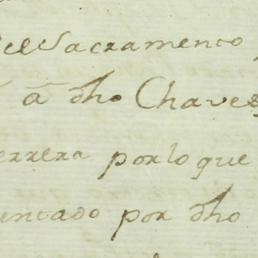 el Sacramento
á dho Chaves
errera por lo que
entado por dho